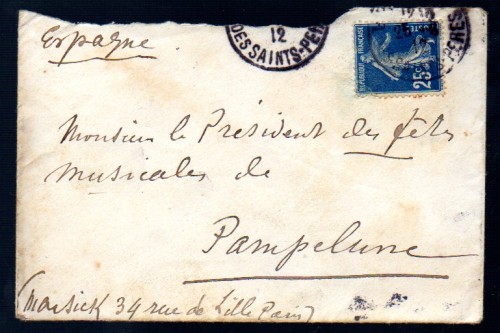 Espagne
12
DES SAINTS-PE
REPUBLIQUE FRANÇAISE
25c
Monsieur le Président des fêtes
musicales de
Pampelune
(Marsick 34 rue de Lille Paris)